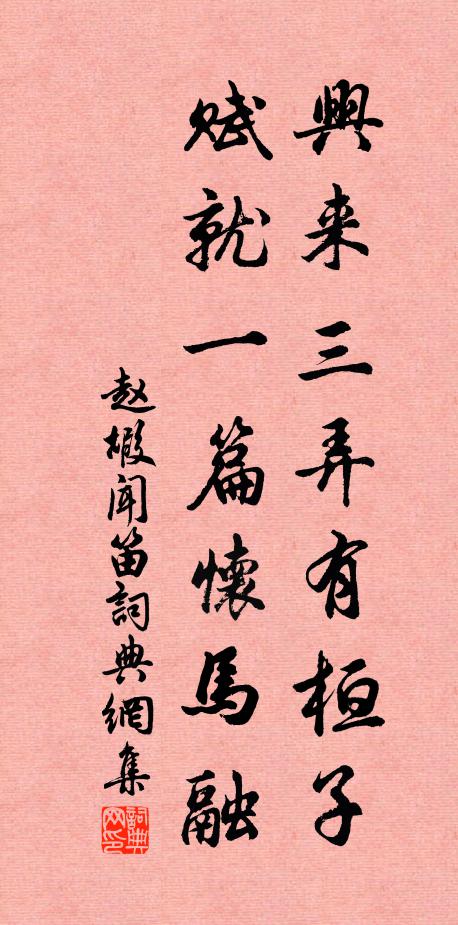 興来三弄有桓子
賦就一篇懷馬融
赵嘏闻笛詞典網集
詞典网印